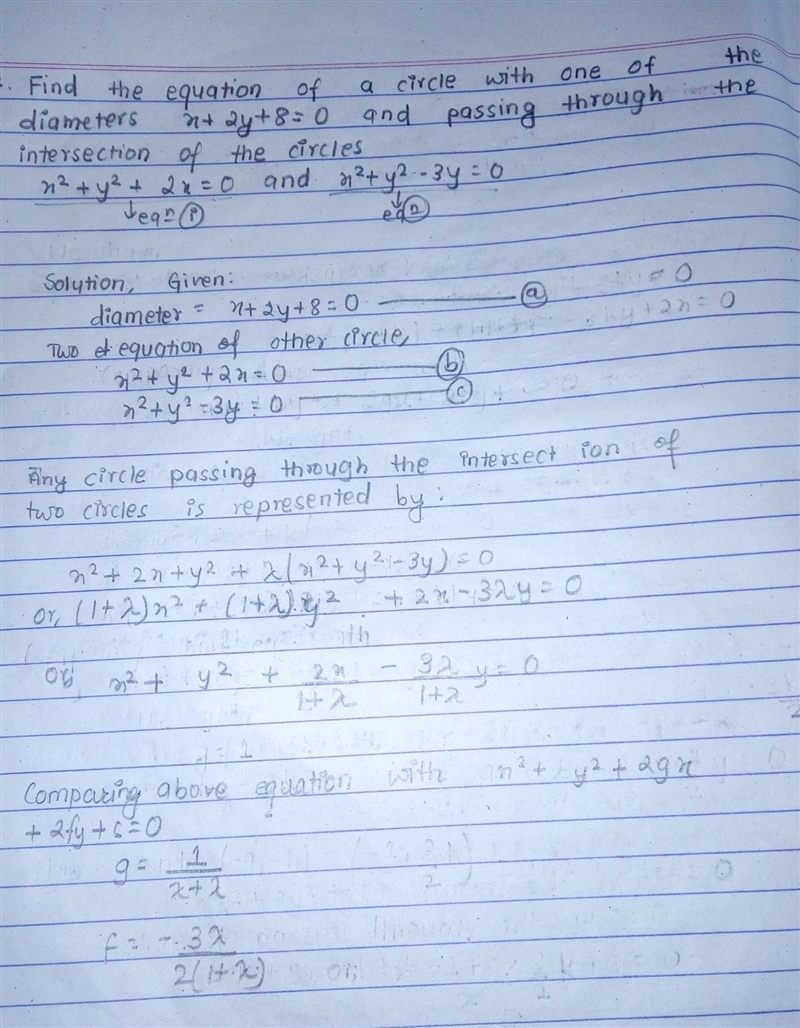 Find the equation of a circle with one of the
diameters x + 2y + 8 = 0 and passing through the
intersection of the circles
x² + y² + 2x = 0 and x² + y² - 3y = 0
↓eqn (i) ↓eqn (ii)
Solution, Given:
diameter = x + 2y + 8 = 0 ——— (a)
Two equation of other circle,
x² + y² + 2x = 0 ——— (b)
x² + y² - 3y = 0 ——— (c)
Any circle passing through the intersect ion of
two circles is represented by:
x² + 2x + y² + λ(x² + y² - 3y) = 0
Or, (1 + λ)x² + (1 + λ) y² + 2x - 3λy = 0
Or, x² + y² + 2x/(1 + λ) - 3λ/(1 + λ) y = 0
Comparing above equation with x² + y² + 2gx
+ 2fy + c = 0
g = 1/(x + λ)
f = - 3λ/2(1 + λ)